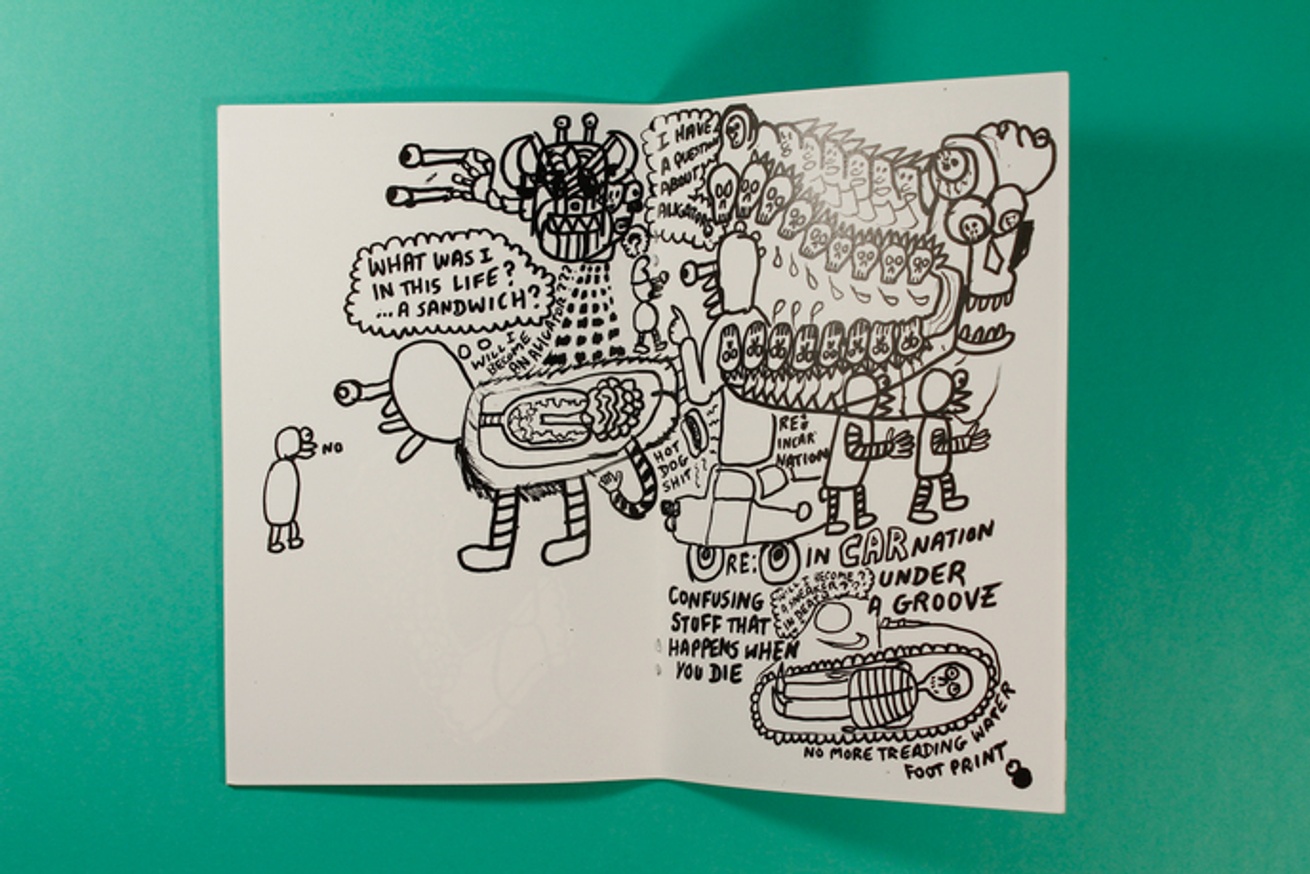 WHAT WAS I
IN THIS LIFE?
...A SANDWICH?
WILL I
BECOME
AN ALIGATOR???
NO
I HAVE
A QUESTION
ABOUT
ALIGATORS
HOT
DOG
SHIT
RE:
INCAR
NATION
RE: IN CARNATION
UNDER
A GROOVE
CONFUSING
STUFF THAT
HAPPENS WHEN
YOU DIE
WILL I BECOME
A SNEAKER??
IN DEATH
NO MORE TREADING WATER
FOOT PRINT